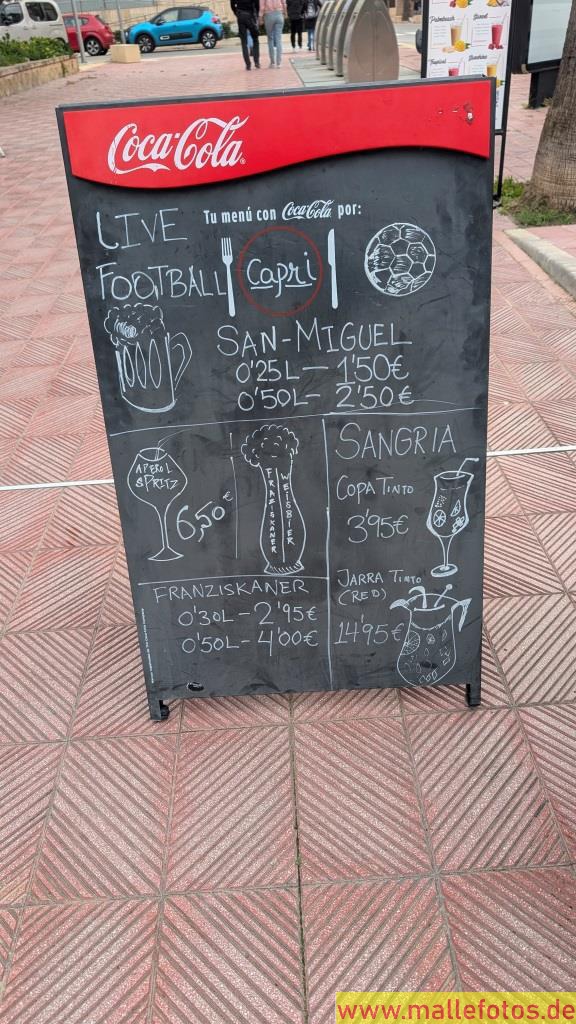 Palmbeach
Sunset
Tropical
Sunshine
Coca-Cola
LIVE
FOOTBALL
Tu menú con Coca-Cola por:
Capri
SAN-MIGUEL
0'25L — 1'50€
0'50L — 2'50€
APEROL
SPRITZ
6,50€
FRAZISKANER
WEISBIER
SANGRIA
COPA TINTO
3'95€
JARRA TINTO
(RED)
14'95€
FRANZISKANER
0'30L — 2'95€
0'50L — 4'00€
www.mallefotos.de